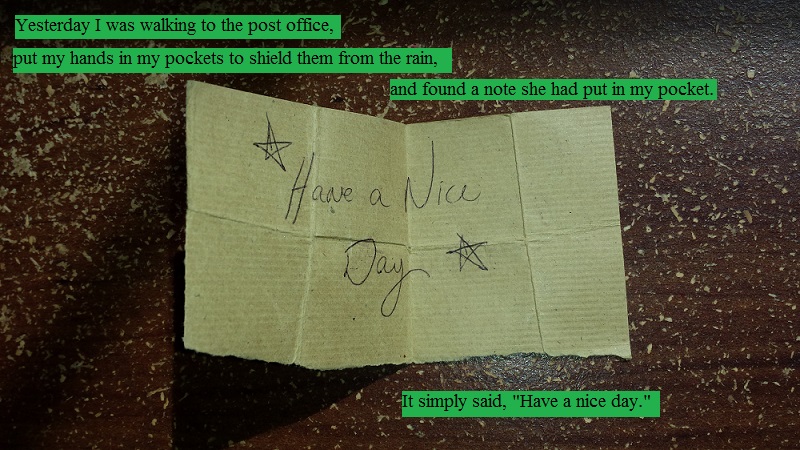 Yesterday I was walking to the post office,
put my hands in my pockets to shield them from the rain,
and found a note she had put in my pocket.
Have a Nice
Day
It simply said, "Have a nice day."